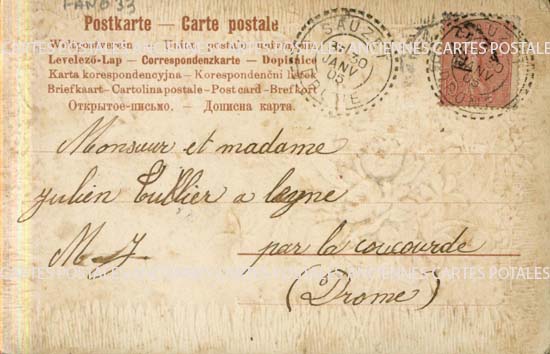 FANO 33
Postkarte — Carte postale
Weltpostverein — Union postale universelle
Levelező-Lap — Correspondenzkarte — Dopisnice
Karta korespondencyjna — Korespondenční lístek
Briefkaart — Cartolina postale — Post card — Brefkort
Открытое письмо. — Дописна карта.
SAUZET
30
JANV
05
Monsieur et madame
julien Tullier a leyne
par la coucourde
(Drome)
CARTES POSTALES ANCIENNES CARTES POSTALES